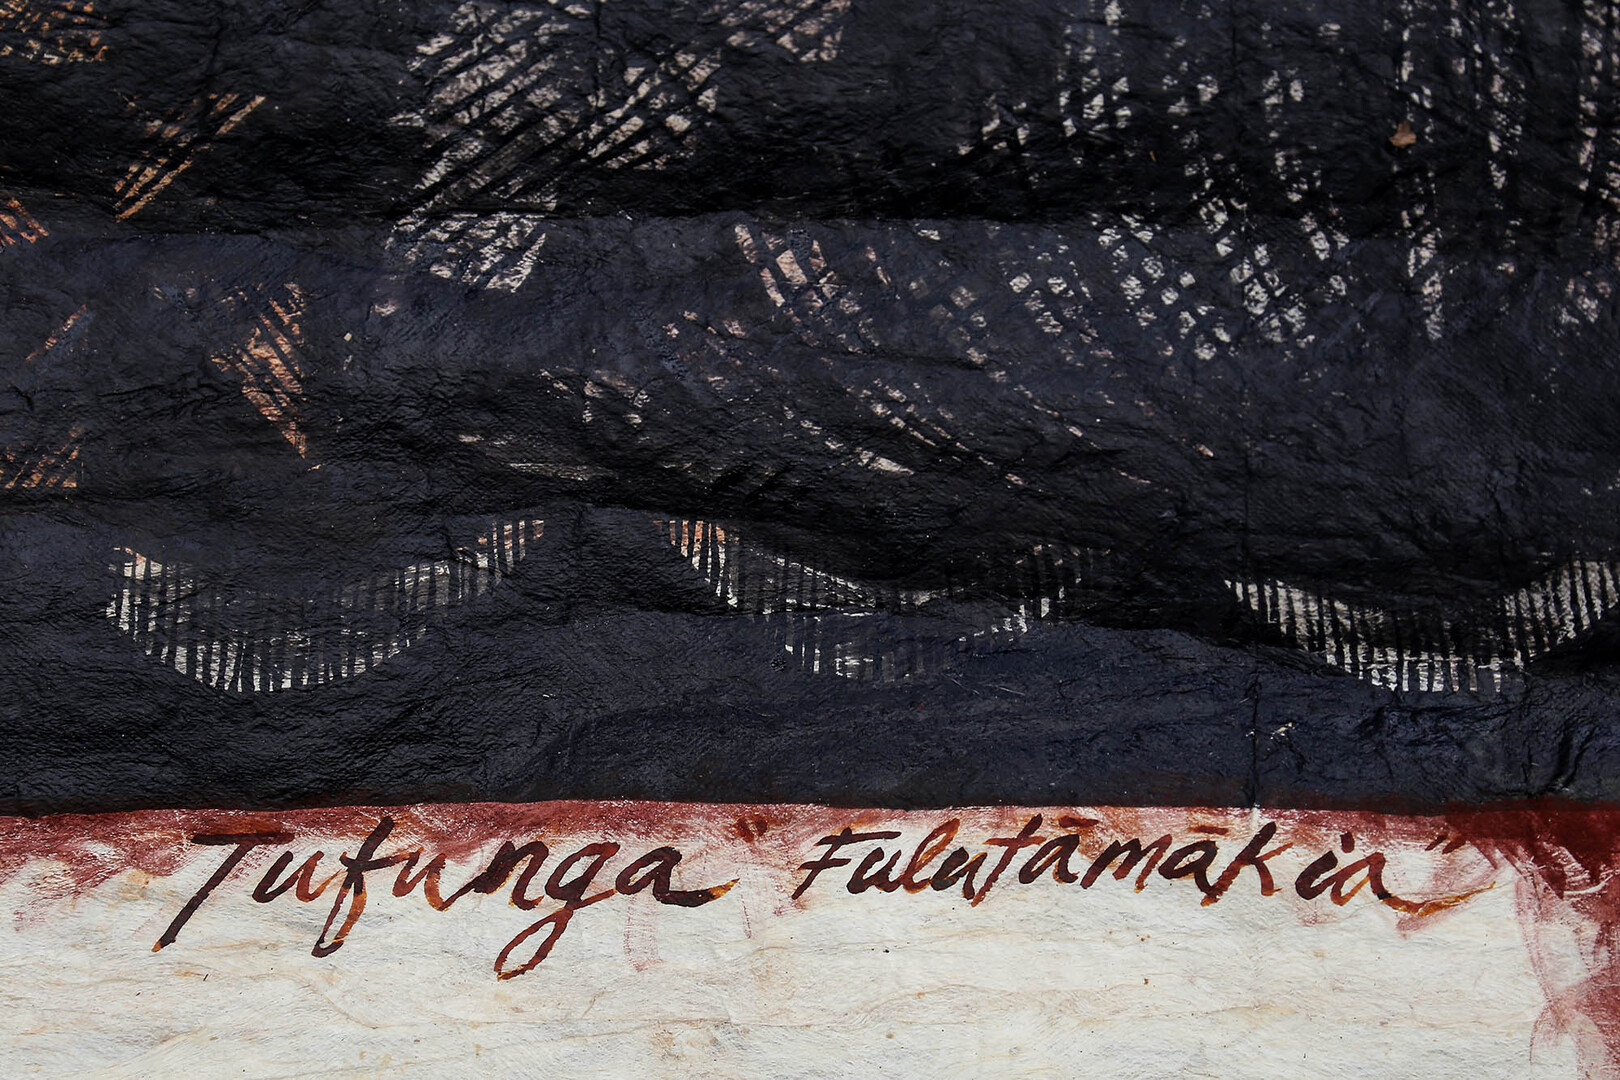 Tufunga "Fulutāmākia"